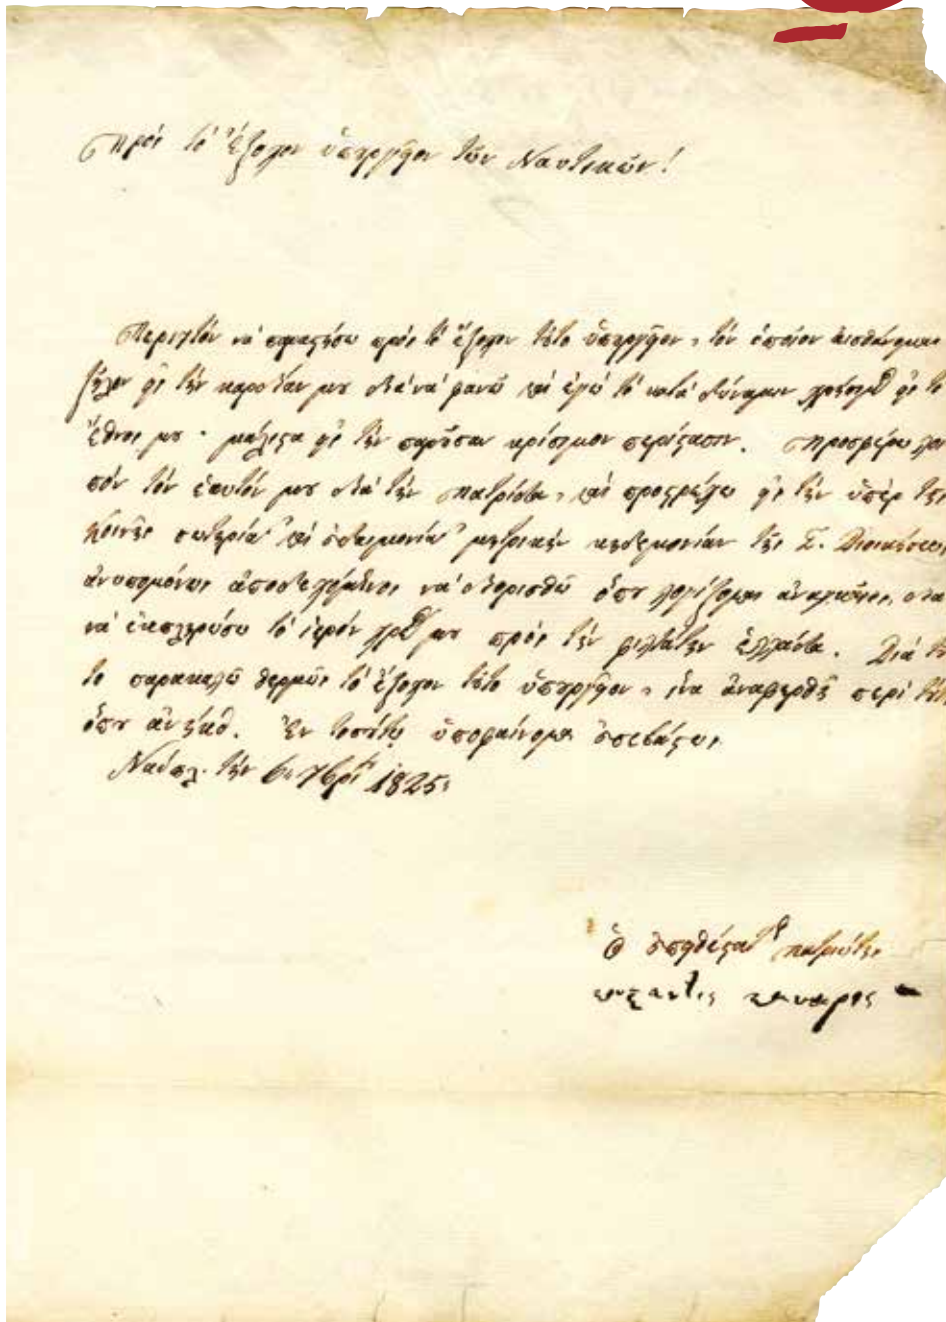 Πρὸς τὸ ἔξοχον ὑπουργεῖον τῶν Ναυτικῶν!
Περιττὸν νὰ παραστήσω πρὸς τὸ ἔξοχον τοῦτο ὑπουργεῖον, τὸν ὁποῖον αἰσθάνομαι
ζῆλον εἰς τὴν καρδίαν μου διὰ νὰ φανῶ καὶ ἐγὼ τὸ κατὰ δύναμιν εἰς τὸ
ἔθνος μου · μάλιστα εἰς τὴν παροῦσαν κρίσιμον περίστασιν. Προσφέρω λοι
πὸν τὸν ἑαυτόν μου διὰ τὴν πατρίδα, καὶ προστρέχω εἰς τὴν ὑπὲρ τῆς
κοινῆς σωτηρίας καὶ εὐδαιμονίας μητρικὴν κηδεμονίαν τῆς Σ. Διοικήσεως
ἀνυπομόνως ἀποδεχόμενος νὰ διορισθῶ ὅπου λογίζομαι ἀναγκαῖος, διὰ
νὰ ἐκπληρώσω τὸ ἱερόν χρέος μου πρὸς τὴν φιλτάτην ἑλλάδα. Διὰ τοῦ
το παρακαλῶ θερμῶς τὸ ἔξοχον τοῦτο ὑπουργεῖον, ἵνα ἀναφερθῇ περὶ
ὅπου ἀνήκει. Ἐν τοσούτῳ ὑποφαίνομαι εὐσεβάστως
Ναύπλ. τὴν 6 7βρίου 1825:
Ὁ εὐπειθέστατος πατριώτης
κοσταντις καναρις